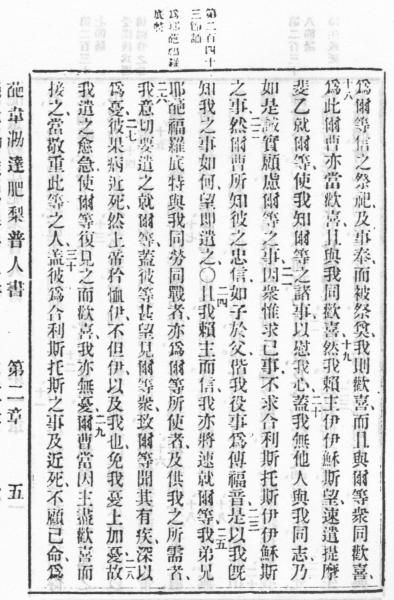 第二百四十
三節誦
爲爾等信之祭祀及事奉而被祭奠我則歡喜而且與爾等衆同歡喜
十八爲此爾曹亦當歡喜且與我同歡喜十九然我賴主伊伊穌斯望速遣提摩
斐乙就爾等使我知爾等之諸事以慰我心二十蓋我無他人與我同志乃
如是誠實顧慮爾等之事二一因衆惟求己事不求合利斯托斯伊伊穌斯
之事二二然爾曹所知彼之忠信如子於父偕我役事爲傳福音二三是以我旣
知我之事如何望即遣之〇二四且我賴主而信我亦將速就爾等二五我弟兄
耶葩福羅底特與我同勞同戰者亦爲爾等所使者及供我之所需者
二六我意切要遣之就爾等蓋彼等甚望見爾等衆致爾等聞其有疾深以
爲憂二七彼果病近死然上帝矜恤伊不但伊以及我也免我憂上加憂二八故
我遣之愈急使爾等復見之而歡喜我亦無憂二九爾曹當因主盡歡喜而
接之當敬重此等之人三十蓋彼爲合利斯托斯之事及近死不顧己命爲
葩韋勒達肥梨普人書 第二章 五